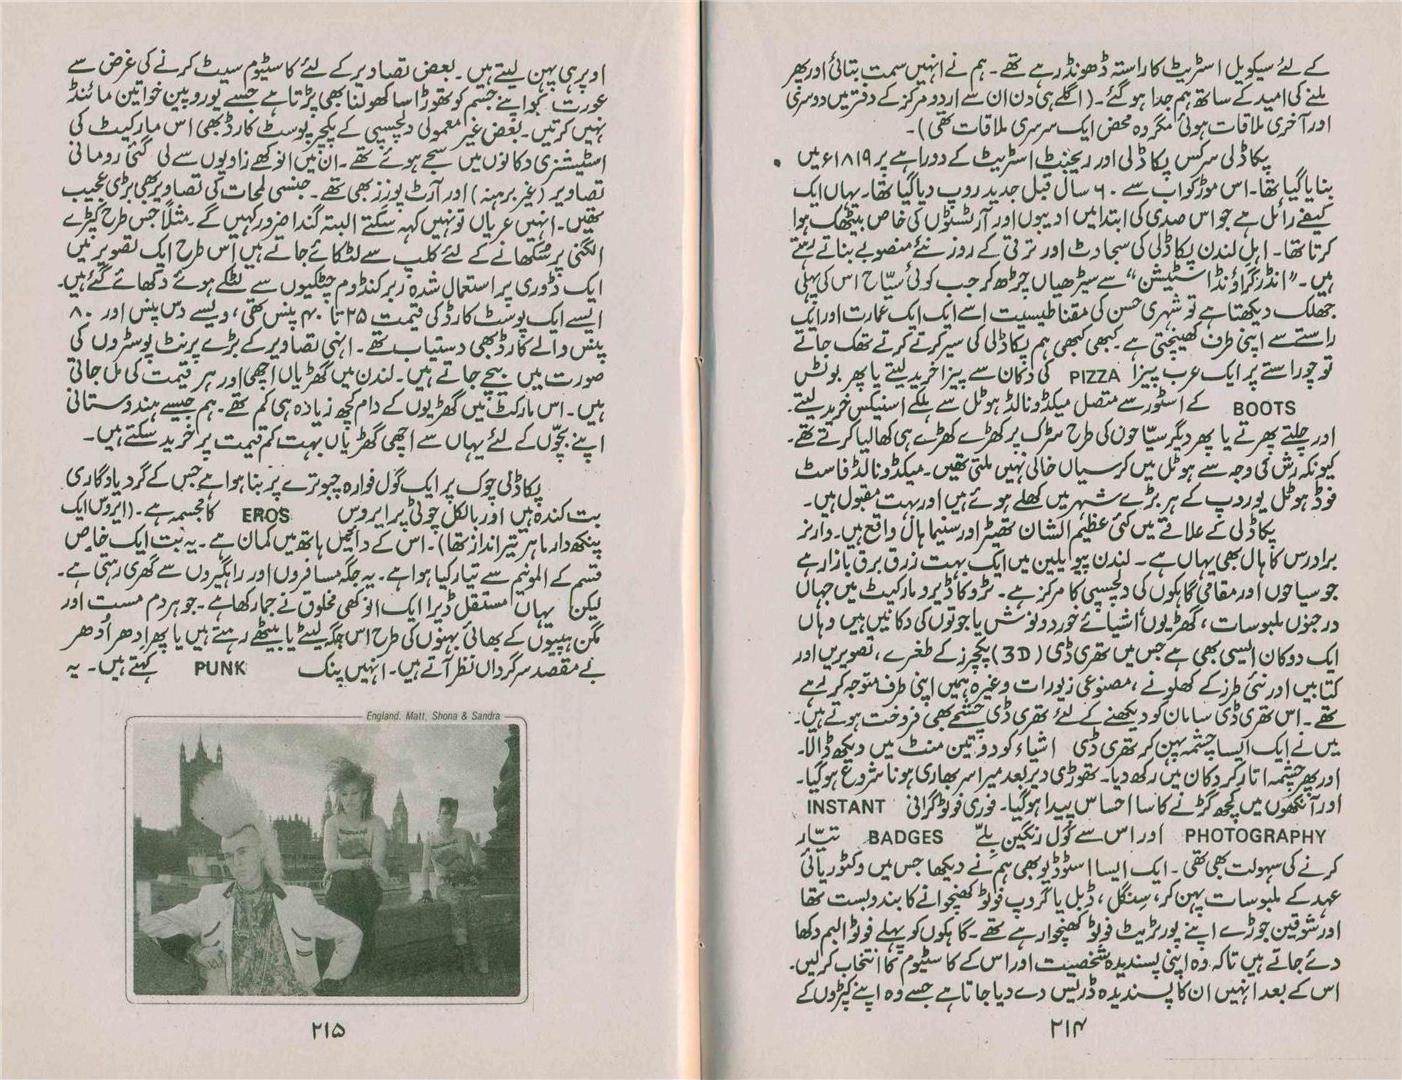 کے لئے سیکویل اسٹریٹ کا راستہ ڈھونڈ رہے تھے۔ ہم نے انہیں سمت بتائی اور پھر
ملنے کی امید کے ساتھ ہم جدا ہو گئے۔ (اگلے ہی دن ان سے اردو مرکز کے دفتر میں دوسری
اور آخری ملاقات ہوئی مگر وہ محض ایک سرسری ملاقات تھی)۔
پکاڈلی سرکس پکاڈلی اور ریجنٹ اسٹریٹ کے دوراہے پر ۱۸۱۹ء میں
بنایا گیا تھا۔ اس موڑ کو اب سے ۶۰ سال قبل جدید روپ دیا گیا تھا۔ یہاں ایک
کیفے رائل ہے جو اس صدی کی ابتدا میں ادیبوں اور آرٹسٹوں کی خاص بیٹھک ہوا
کرتا تھا۔ اہل لندن پکاڈلی کی سجاوٹ اور ترقی کے روز نئے منصوبے بناتے رہتے
ہیں۔ "انڈر گراؤنڈ اسٹیشن" سے سیڑھیاں چڑھ کر جب کوئی سیّاح اس کی پہلی
جھلک دیکھتا ہے تو شہری حسن کی مقناطیسیت اسے ایک ایک عمارت اور ایک ایک
راستے سے اپنی طرف کھینچتی ہے۔ کبھی کبھی ہم پکاڈلی کی سیر کرتے کرتے تھک جاتے
تو چوراستے پر ایک عرب پیزا PIZZA کی دکان سے پیزا خرید لیتے یا پھر بوٹس
BOOTS کے اسٹور سے متصل میکڈونالڈ ہوٹل سے ہلکے اسنیکس خرید لیتے۔
اور چلتے پھرتے یا پھر دیگر سیّاحوں کی طرح سڑک پر کھڑے کھڑے ہی کھا لیا کرتے تھے۔
کیونکہ رش کی وجہ سے ہوٹل میں کرسیاں خالی نہیں ملتی تھیں۔ میکڈونالڈ فاسٹ
فوڈ ہوٹل یوروپ کے ہر بڑے شہر میں کھلے ہوئے ہیں اور بہت مقبول ہیں۔
پکاڈلی کے علاقے میں کئی عظیم الشان تھیٹر اور سنیما ہال واقع ہیں۔ وارنر
برادرس کا ہال بھی یہاں ہے۔ لندن پویلین میں ایک بہت زرق برق بازار ہے
جو سیاحوں اور مقامی گاہکوں کی دلچسپی کا مرکز ہے۔ ٹروکاڈیرو مارکیٹ میں جہاں
درجنوں ملبوسات، گھڑیوں، اشیائے خورد و نوش یا جوتوں کی دکانیں ہیں وہاں
ایک دوکان ایسی بھی ہے جس میں تھری ڈی (3D) پکچرز کے طغرے، تصویریں اور
کتابیں اور نئی طرز کے کھلونے، مصنوعی زیورات وغیرہ ہمیں اپنی طرف متوجہ کر لیتے
تھے۔ اس تھری ڈی سامان کو دیکھنے کے لئے تھری ڈی چشمے بھی فروخت ہوتے ہیں۔
میں نے ایک ایسا چشمہ پہن کر تھری ڈی اشیاء کو دو تین منٹ میں دیکھ ڈالا۔
اور پھر چشمہ اتار کر دکان میں رکھ دیا۔ تھوڑی دیر بعد میرا سر بھاری ہونا شروع ہو گیا۔
اور آنکھوں میں کچھ گڑنے کا سا احساس پیدا ہو گیا۔ فوری فوٹوگرافی INSTANT
PHOTOGRAPHY اور اس سے گول رنگین بِلّے BADGES تیّار
کرنے کی سہولت بھی تھی۔ ایک ایسا اسٹوڈیو بھی ہم نے دیکھا جس میں وکٹوریائی
عہد کے ملبوسات پہن کر، سنگل، ڈبل یا گروپ فوٹو کھنچوانے کا بندوبست تھا
اور شوقین جوڑے اپنے پورٹریٹ فوٹو کھنچوا رہے تھے۔ گاہکوں کو پہلے فوٹو البم دکھا
دئے جاتے ہیں تاکہ وہ اپنی پسندیدہ شخصیت اور اس کے کاسٹیوم کا انتخاب کر لیں۔
اس کے بعد انہیں ان کا پسندیدہ ڈریس دے دیا جاتا ہے جسے وہ اپنے کپڑوں کے
۲۱۴
اوپر ہی پہن لیتے ہیں۔ بعض تصاویر کے لئے کاسٹیوم سیٹ کرنے کی غرض سے
عورت کو اپنے جسم کو تھوڑا سا کھولنا بھی پڑتا ہے جسے یوروپین خواتین مائنڈ
نہیں کرتیں۔ بعض غیر معمولی دلچسپی کے پکچر پوسٹ کارڈ بھی اس مارکیٹ کی
اسٹیشنری دکانوں میں سجے ہوئے تھے۔ ان میں انوکھے زاویوں سے لی گئی رومانی
تصاویر (غیر برہنہ) اور آرٹ پورزز بھی تھے۔ جنسی لمحات کی تصاویر بھی بڑی عجیب
تھیں۔ انہیں عریاں تو نہیں کہہ سکتے البتہ گندا ضرور کہیں گے۔ مثلاً جس طرح کپڑے
الگنی پر سُکھانے کے لئے کلپ سے لٹکائے جاتے ہیں اس طرح ایک تصویر میں
ایک ڈوری پر استعمال شدہ ربر کنڈوم چٹکیوں سے لٹکے ہوئے دکھائے گئے ہیں۔
ایسے ایک پوسٹ کارڈ کی قیمت ۲۵ تا ۴۰ پنس تھی، ویسے دس پنس اور ۸۰
پنس والے کارڈ بھی دستیاب تھے۔ انہی تصاویر کے بڑے پرنٹ پوسٹروں کی
صورت میں بیچے جاتے ہیں۔ لندن میں گھڑیاں اچھی اور ہر قیمت کی مل جاتی
ہیں۔ اس مارکٹ میں گھڑیوں کے دام کچھ زیادہ ہی کم تھے۔ ہم جیسے ہندوستانی
اپنے بچّوں کے لئے یہاں سے اچھی گھڑیاں بہت کم قیمت پر خرید سکتے ہیں۔
پکاڈلی چوک پر ایک گول فوارہ چبوترے پر بنا ہوا ہے جس کے گرد یادگاری
بت کندہ ہیں اور بالکل چوٹی پر ایروس EROS کا مجسمہ ہے۔ (ایروس ایک
پنکھ دار ماہر تیر انداز تھا)۔ اس کے دائیں ہاتھ میں کمان ہے۔ یہ بُت ایک خاص
قسم کے المونیم سے تیار کیا ہوا ہے۔ یہ جگہ مسافروں اور راہگیروں سے گھری رہتی ہے۔
لیکن یہاں مستقل ڈیرا ایک انوکھی مخلوق نے جما رکھا ہے۔ جو ہر دم مست اور
مگن ہپیوں کے بھائی بہنوں کی طرح اس جگہ لیٹے یا بیٹھے رہتے ہیں یا پھر اِدھر اُدھر
بے مقصد سرگرداں نظر آتے ہیں۔ انہیں پنک PUNK کہتے ہیں۔ یہ
England. Matt, Shona & Sandra
۲۱۵